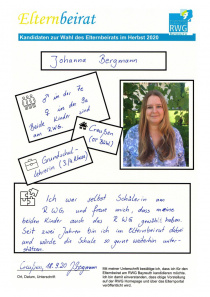 Elternbeirat
RWG
Kandidaten zur Wahl des Elternbeirats im Herbst 2020
Johanna Bergmann
♂ in der 7c
♀ in der 9a
Beide Kinder
am RWG.
Creußen
(Or BDW)
Grundschul-
lehrerin (3/4 Klasse)
Ich war selbst Schülerin am
RWG und freue mich, dass meine
beiden Kinder auch das RWG gewählt haben.
Seit zwei Jahren bin ich im Elternbeirat dabei
und würde die Schule so gerne weiterhin unter-
stützen.
Creußen, 18.9.20 JBergmann
Ort, Datum, Unterschrift
Mit meiner Unterschrift bestätige ich, dass ich für den
Elternbeirat am RWG Bayreuth kandidieren möchte.
Ich bin damit einverstanden, dass obige Vorstellung
auf der RWG Homepage und über das Elternportal
veröffentlicht wird.